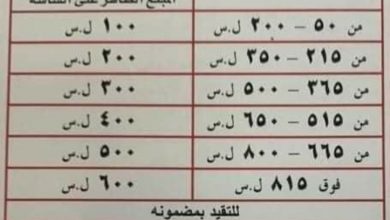 المبلغ الظاهر على الشاشة
من ٥٠ – ٢٠٠ ل.س ١٠٠ ل.س
من ٢١٥ – ٣٥٠ ل.س ٢٠٠ ل.س
من ٣٦٥ – ٥٠٠ ل.س ٣٠٠ ل.س
من ٥١٥ – ٦٥٠ ل.س ٤٠٠ ل.س
من ٦٦٥ – ٨٠٠ ل.س ٥٠٠ ل.س
فوق ٨١٥ ل.س ٦٠٠ ل.س
للتقيد بمضمونه